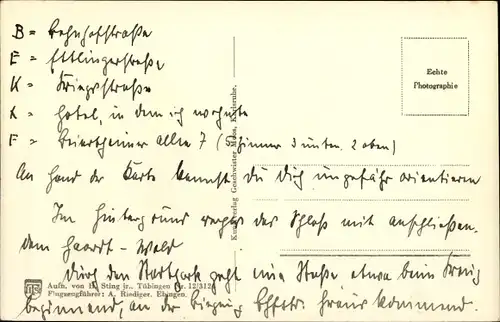 B = Bahnhofstraße
E = Ettlingerstraße
K = Kriegsstraße
X = Hotel, in dem ich wohnte
F = Beiertheimer Allee 7 (Zimmer 3 unten, 2 oben)
An Hand der Karte kannst Du Dich ungefähr orientieren
Im Hintergrund rechts das Schloß mit anschließen-
dem Haardt-Wald
Durch den Stadtpark geht eine Straße etwa beim Kreuz
beginnend, an der Ettlstr. heraus kommend.
Echte
Photographie
Kunstverlag Geschwister Moos, Karlsruhe.
Aufn. von Sting jr., Tübingen Nr. 12/312
Flugzeugführer: A. Riediger, Ehingen.